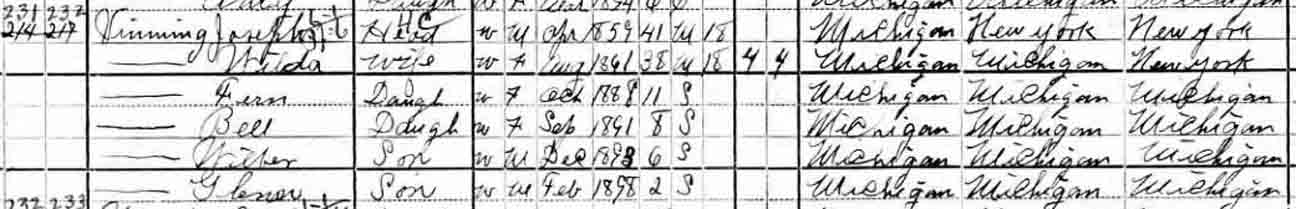 Daugh W F 1894 6 S Michigan Michigan Michigan
231 232
214 217 Vinning Joseph Head W M Apr 1859 41 M 18 Michigan New York New York
—— Wilda Wife W F Aug 1861 38 M 18 4 4 Michigan Michigan New York
—— Fern Daugh W F Oct 1888 11 S Michigan Michigan Michigan
—— Bell Daugh W F Sep 1891 8 S Michigan Michigan Michigan
—— Wilber Son W M Dec 1893 6 S Michigan Michigan Michigan
—— Glenor Son W M Feb 1898 2 S Michigan Michigan Michigan
232 233